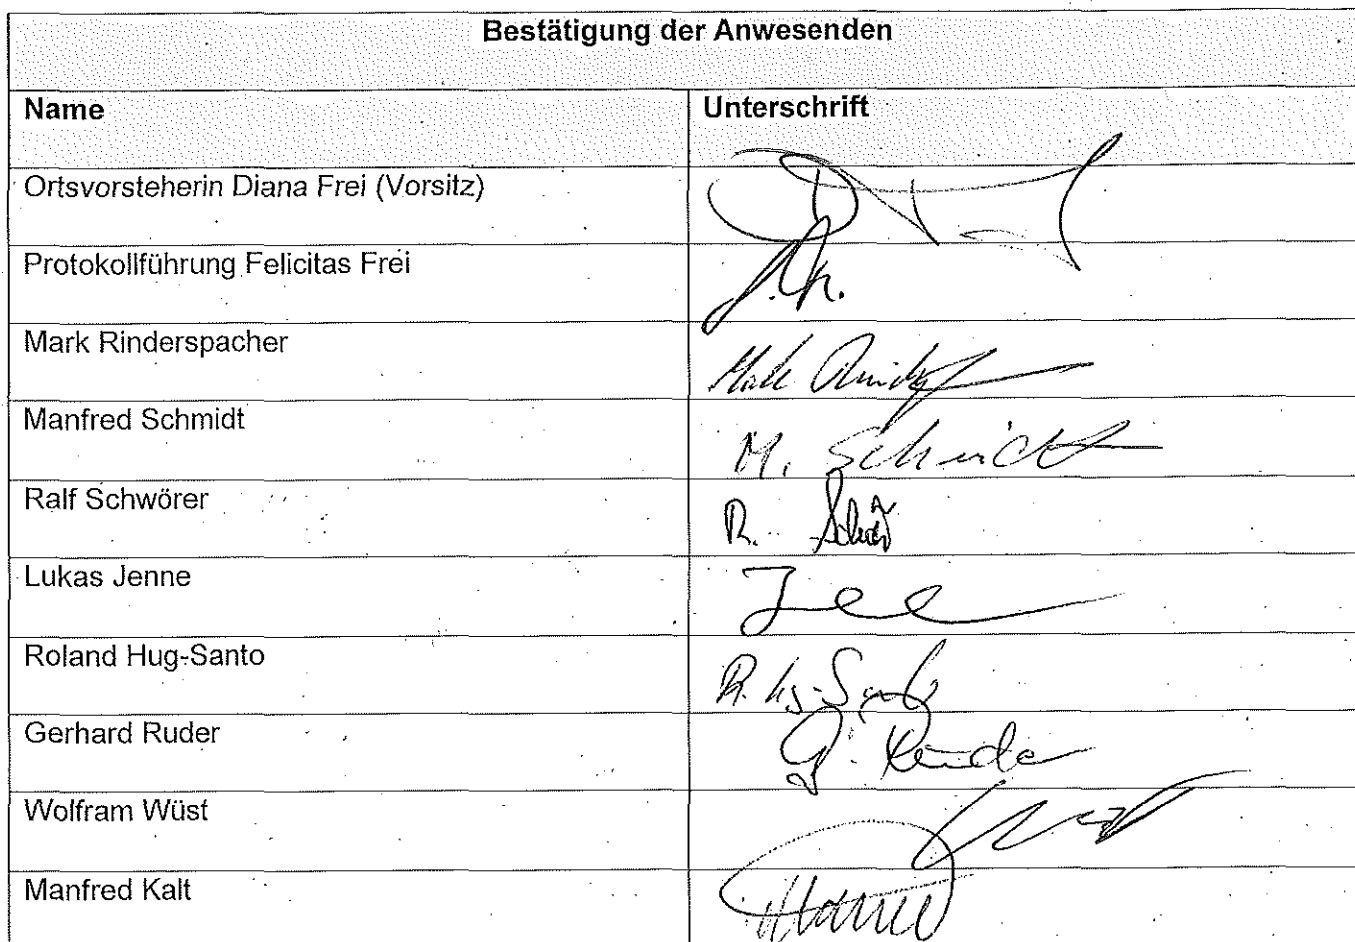 Bestätigung der Anwesenden
Name Unterschrift
Ortsvorsteherin Diana Frei (Vorsitz)
Protokollführung Felicitas Frei
Mark Rinderspacher
Manfred Schmidt M. Schmidt
Ralf Schwörer R.
Lukas Jenne
Roland Hug-Santo R.
Gerhard Ruder G. Ruder
Wolfram Wüst
Manfred Kalt